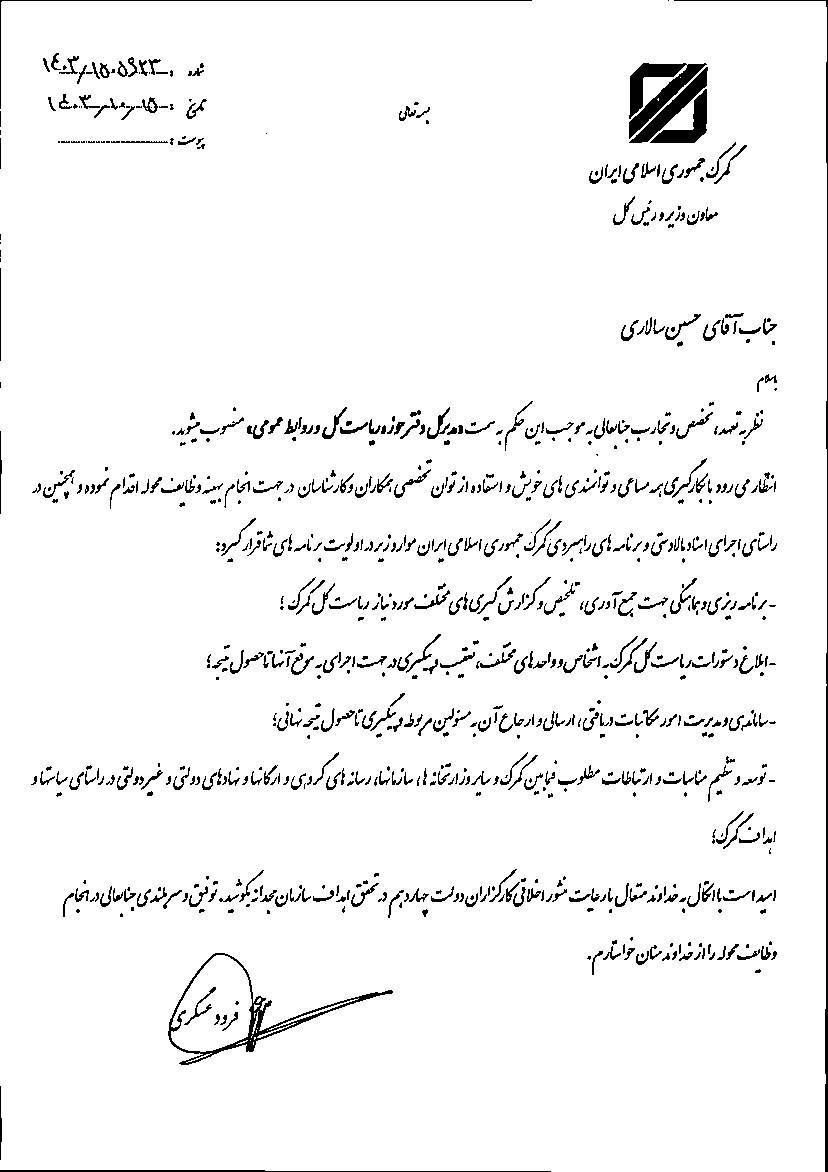 شماره : ۱۴۰۳/۱۵۰۵۹۲۳
تاریخ : ۱۴۰۳/۱۰/۱۵
پیوست :
بسمه تعالی
گمرک جمهوری اسلامی ایران
معاون وزیر و رئیس کل
جناب آقای حسین سالاری
باسلام
نظر به تعهد، تخصص و تجارب جنابعالی به موجب این حکم به سمت «مدیرکل دفتر حوزه ریاست کل و روابط عمومی» منصوب میشوید.
انتظار می رود با بکارگیری همه مساعی و توانمندی های خویش و استفاده از توان تخصصی همکاران و کارشناسان در جهت انجام بهینه وظایف محوله اقدام نموده و همچنین در
راستای اجرای اسناد بالادستی و برنامه های راهبردی گمرک جمهوری اسلامی ایران موارد زیر در اولویت برنامه های شما قرار گیرد:
- برنامه ریزی و هماهنگی جهت جمع آوری، تلخیص و گزارش گیری های مختلف مورد نیاز ریاست کل گمرک ؛
- ابلاغ دستورات ریاست کل گمرک به اشخاص و واحدهای مختلف، تعقیب و پیگیری در جهت اجرای به موقع آنها تا حصول نتیجه؛
- ساماندهی و مدیریت امور مکاتبات دریافتی، ارسالی و ارجاع آن به مسئولین مربوطه و پیگیری تا حصول نتیجه نهائی؛
- توسعه و تنظیم مناسبات و ارتباطات مطلوب فیمابین گمرک و سایر وزارتخانه ها، سازمانها، رسانه های گروهی و ارگانها و نهادهای دولتی و غیردولتی در راستای سیاستها و
اهداف گمرک؛
امید است با اتکال به خداوند متعال با رعایت منشور اخلاقی کارگزاران دولت چهاردهم در تحقق اهداف سازمان مجدانه بکوشید. توفیق و سربلندی جنابعالی در انجام
وظایف محوله را از خداوند منان خواستارم.
فرود عسکری